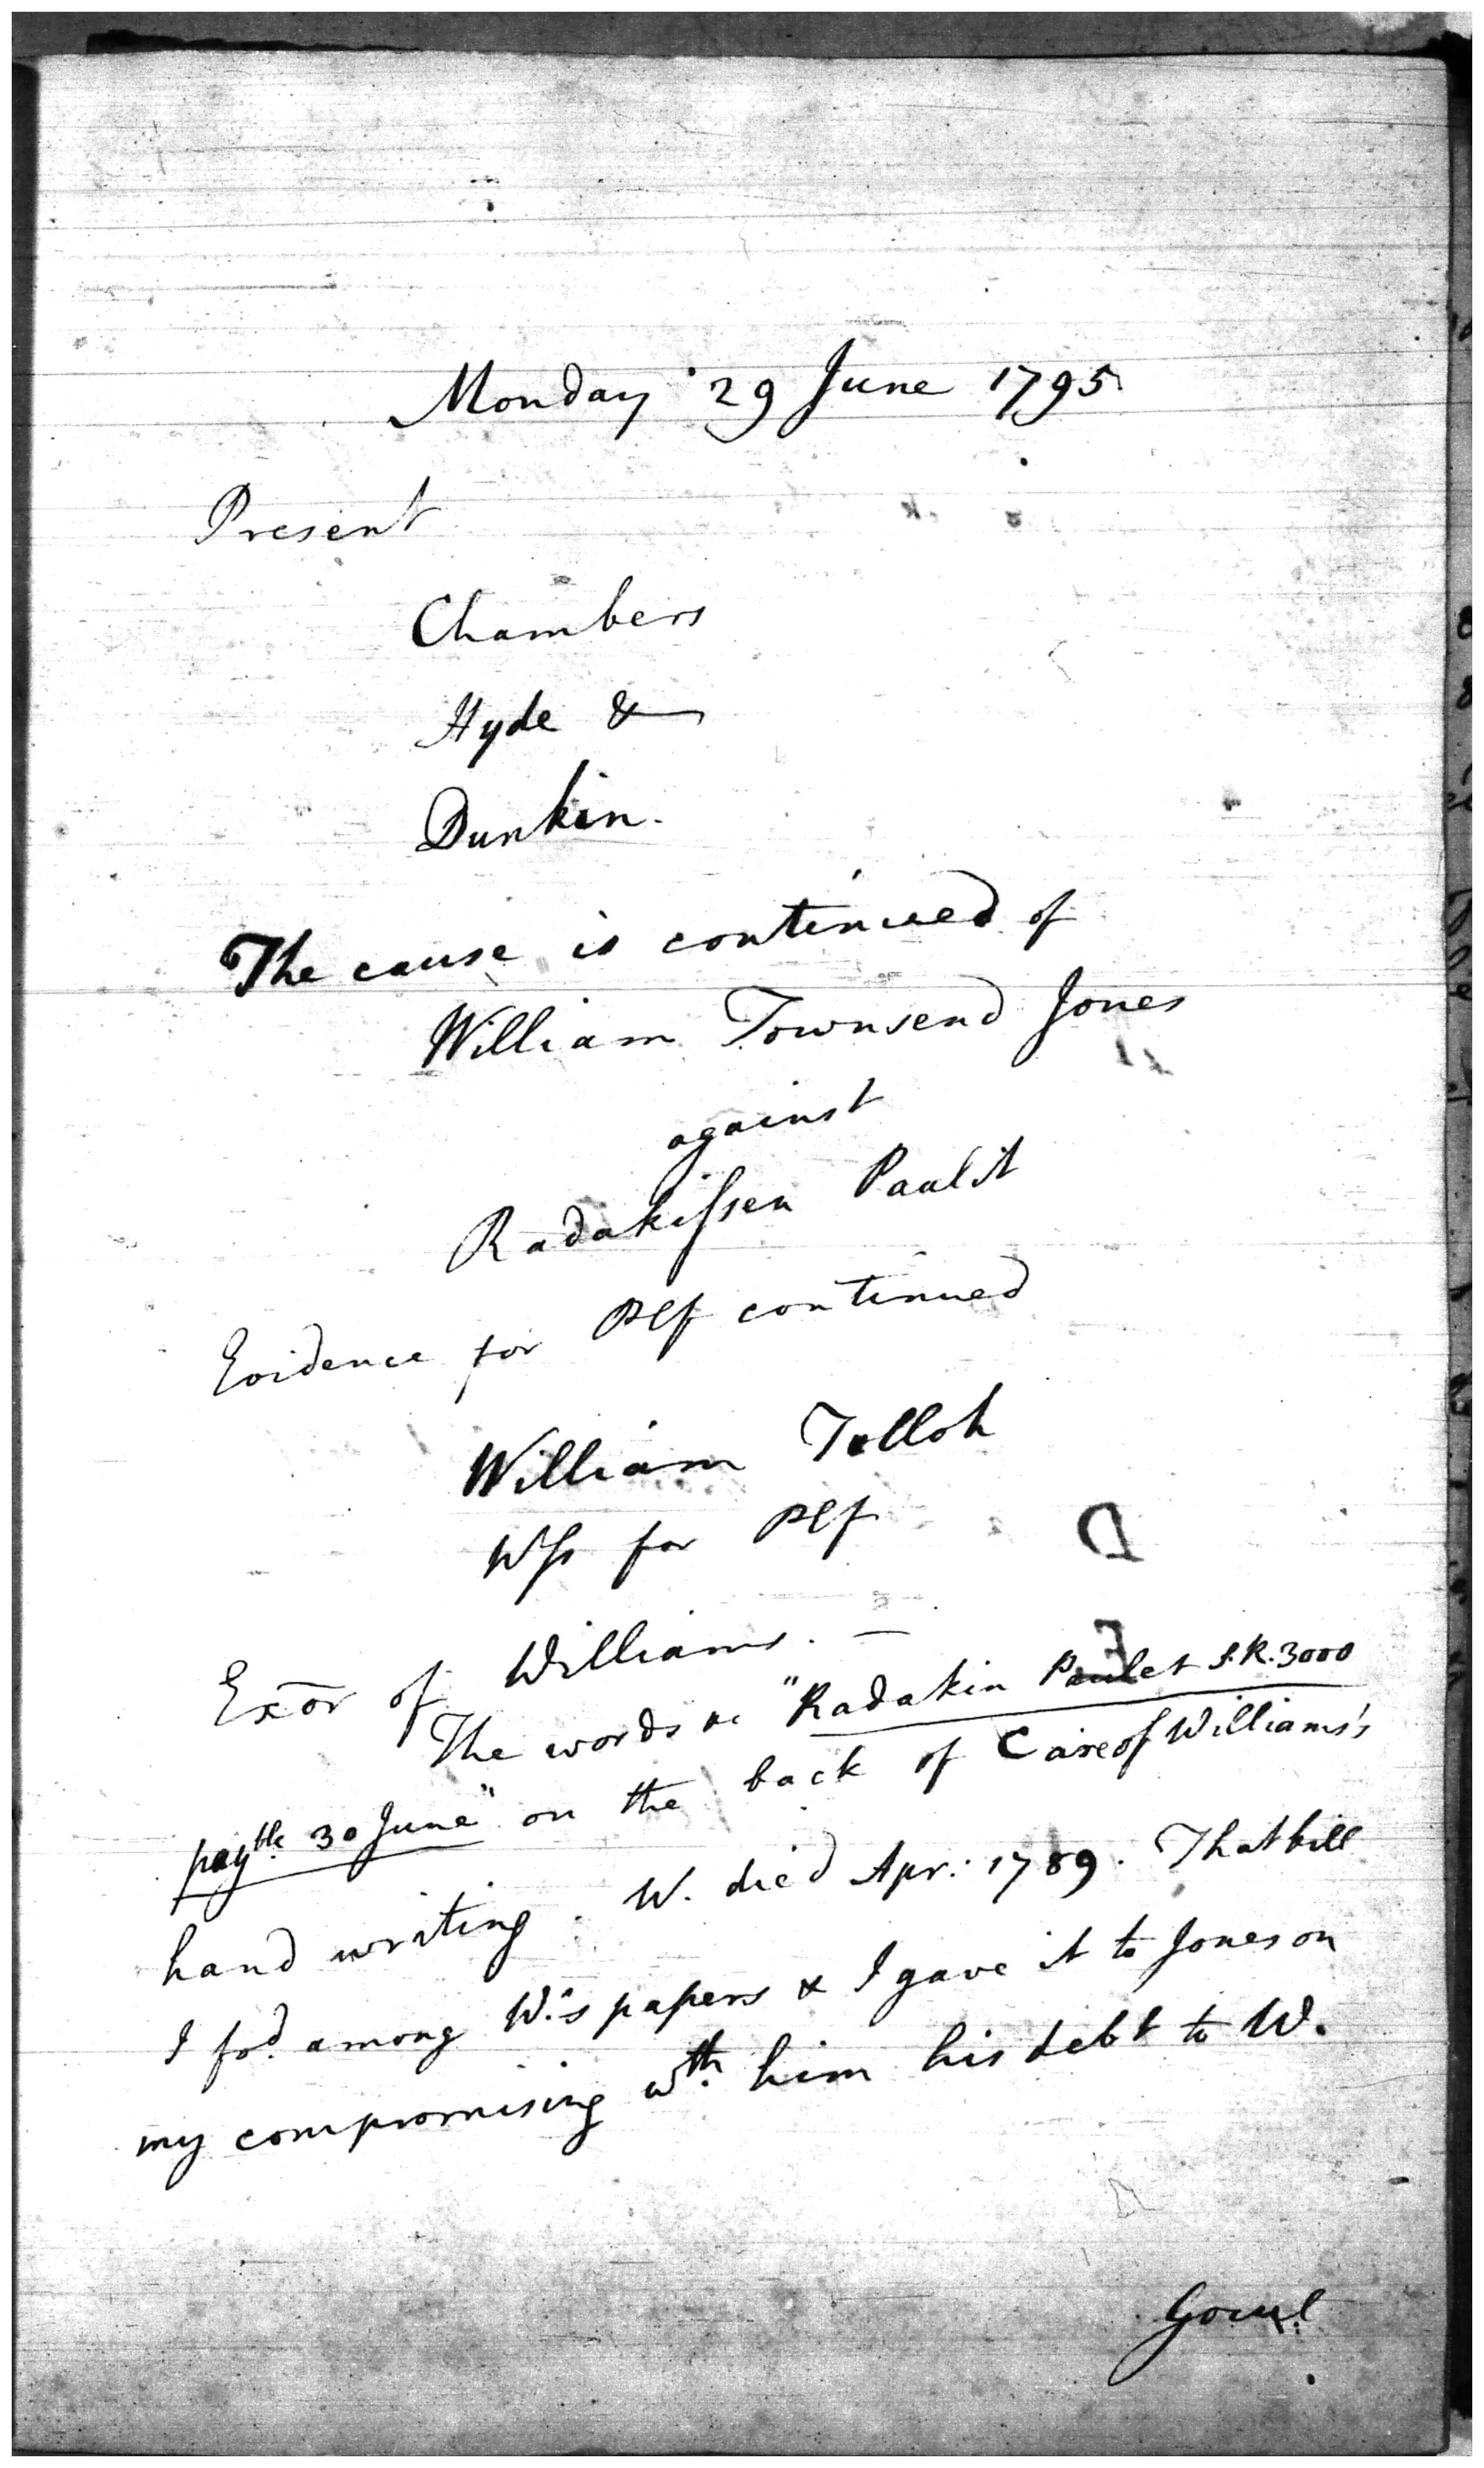 Monday 29 June 1795
Present
Chambers
Hyde &
Dunkin.
The cause is continued of
William Townsend Jones
against
Radakissen Paulit
Evidence for Plf continued
William Tolloh
Wss for Plf
Exōr of Williams. —
The words "Radakin Paulet S.R. 3000
payble. 30 June" on the back of C are of Williams's
hand writing. W. died Apr: 1789. That bill
I fod. among W.'s papers & I gave it to Jones on
my compromising wth. him his debt to W.